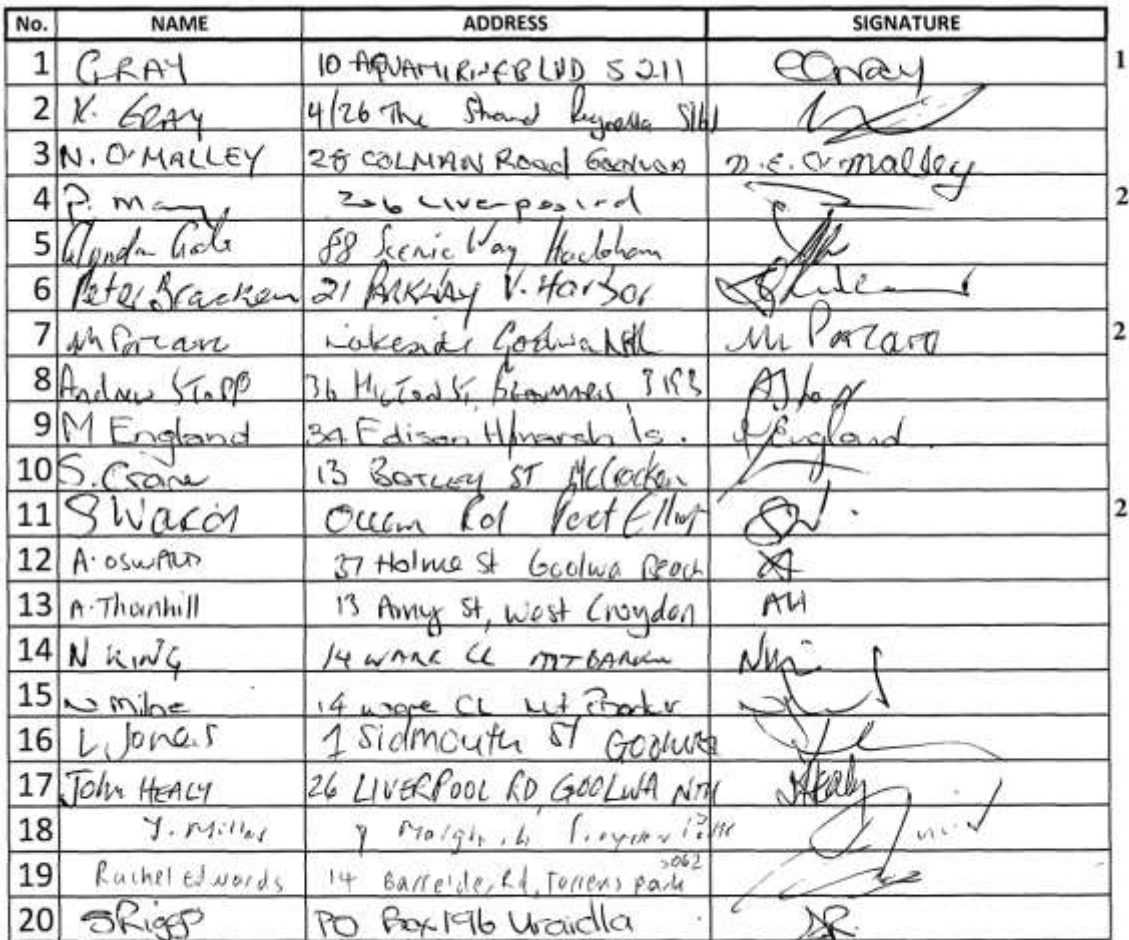 No. NAME ADDRESS SIGNATURE
1 GRAY 10 AQUAMIRINE BLVD 5211 Gray 1
2 K. GRAY 4/26 The Strand Reynella 5161
3 N. O'MALLEY 28 COLMAN Road GOOLWA n.e. O'malley
4 P. 206 Liverpool rd 2
5 Glynda Gale 88 Scenic Way Hackham
6 Peter Bracken 21 PARKWAY V. Harbor
7 M Porcaro Lakeside Goolwa Nth M Porcaro 2
8 Andrew Stapp 36 HILTON ST, BEAUMARIS 3193
9 M England 34 Edison Hinmarsh Is. England
10 S. Crane 13 ST McCracken
11 Ocean Rd Port Elliot 2
12 A. OSWALD 37 Holmes St Goolwa Beach
13 A. Thornhill 13 Amy St, West Croydon AH
14 N KING 14 WARE CL MT BARKER
15 Milne 14 ware CL Mt Barker
16 L. Jones 1 Sidmouth ST GOOLWA
17 John HEALY 26 LIVERPOOL RD GOOLWA NTH Healy
18 J. Miller 9
19 Rachel Edwards 14 Barrelder Rd, Torrens park 5062
20 S Riggs PO Box 196 Uraidla